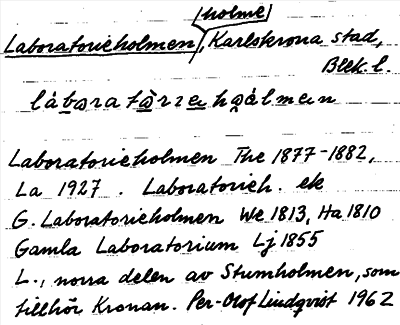 holme
Laboratorieholmen, Karlskrona stad,
Blek. l.
Laboratorieholmen The 1877-1882,
La 1927. Laboratorieh. ek
G. Laboratorieholmen We 1813, Ha 1810
Gamla Laboratorium Lj 1855
L., norra delen av Stumholmen, som
tillhör Kronan. Per-Olof Lindqvist 1962